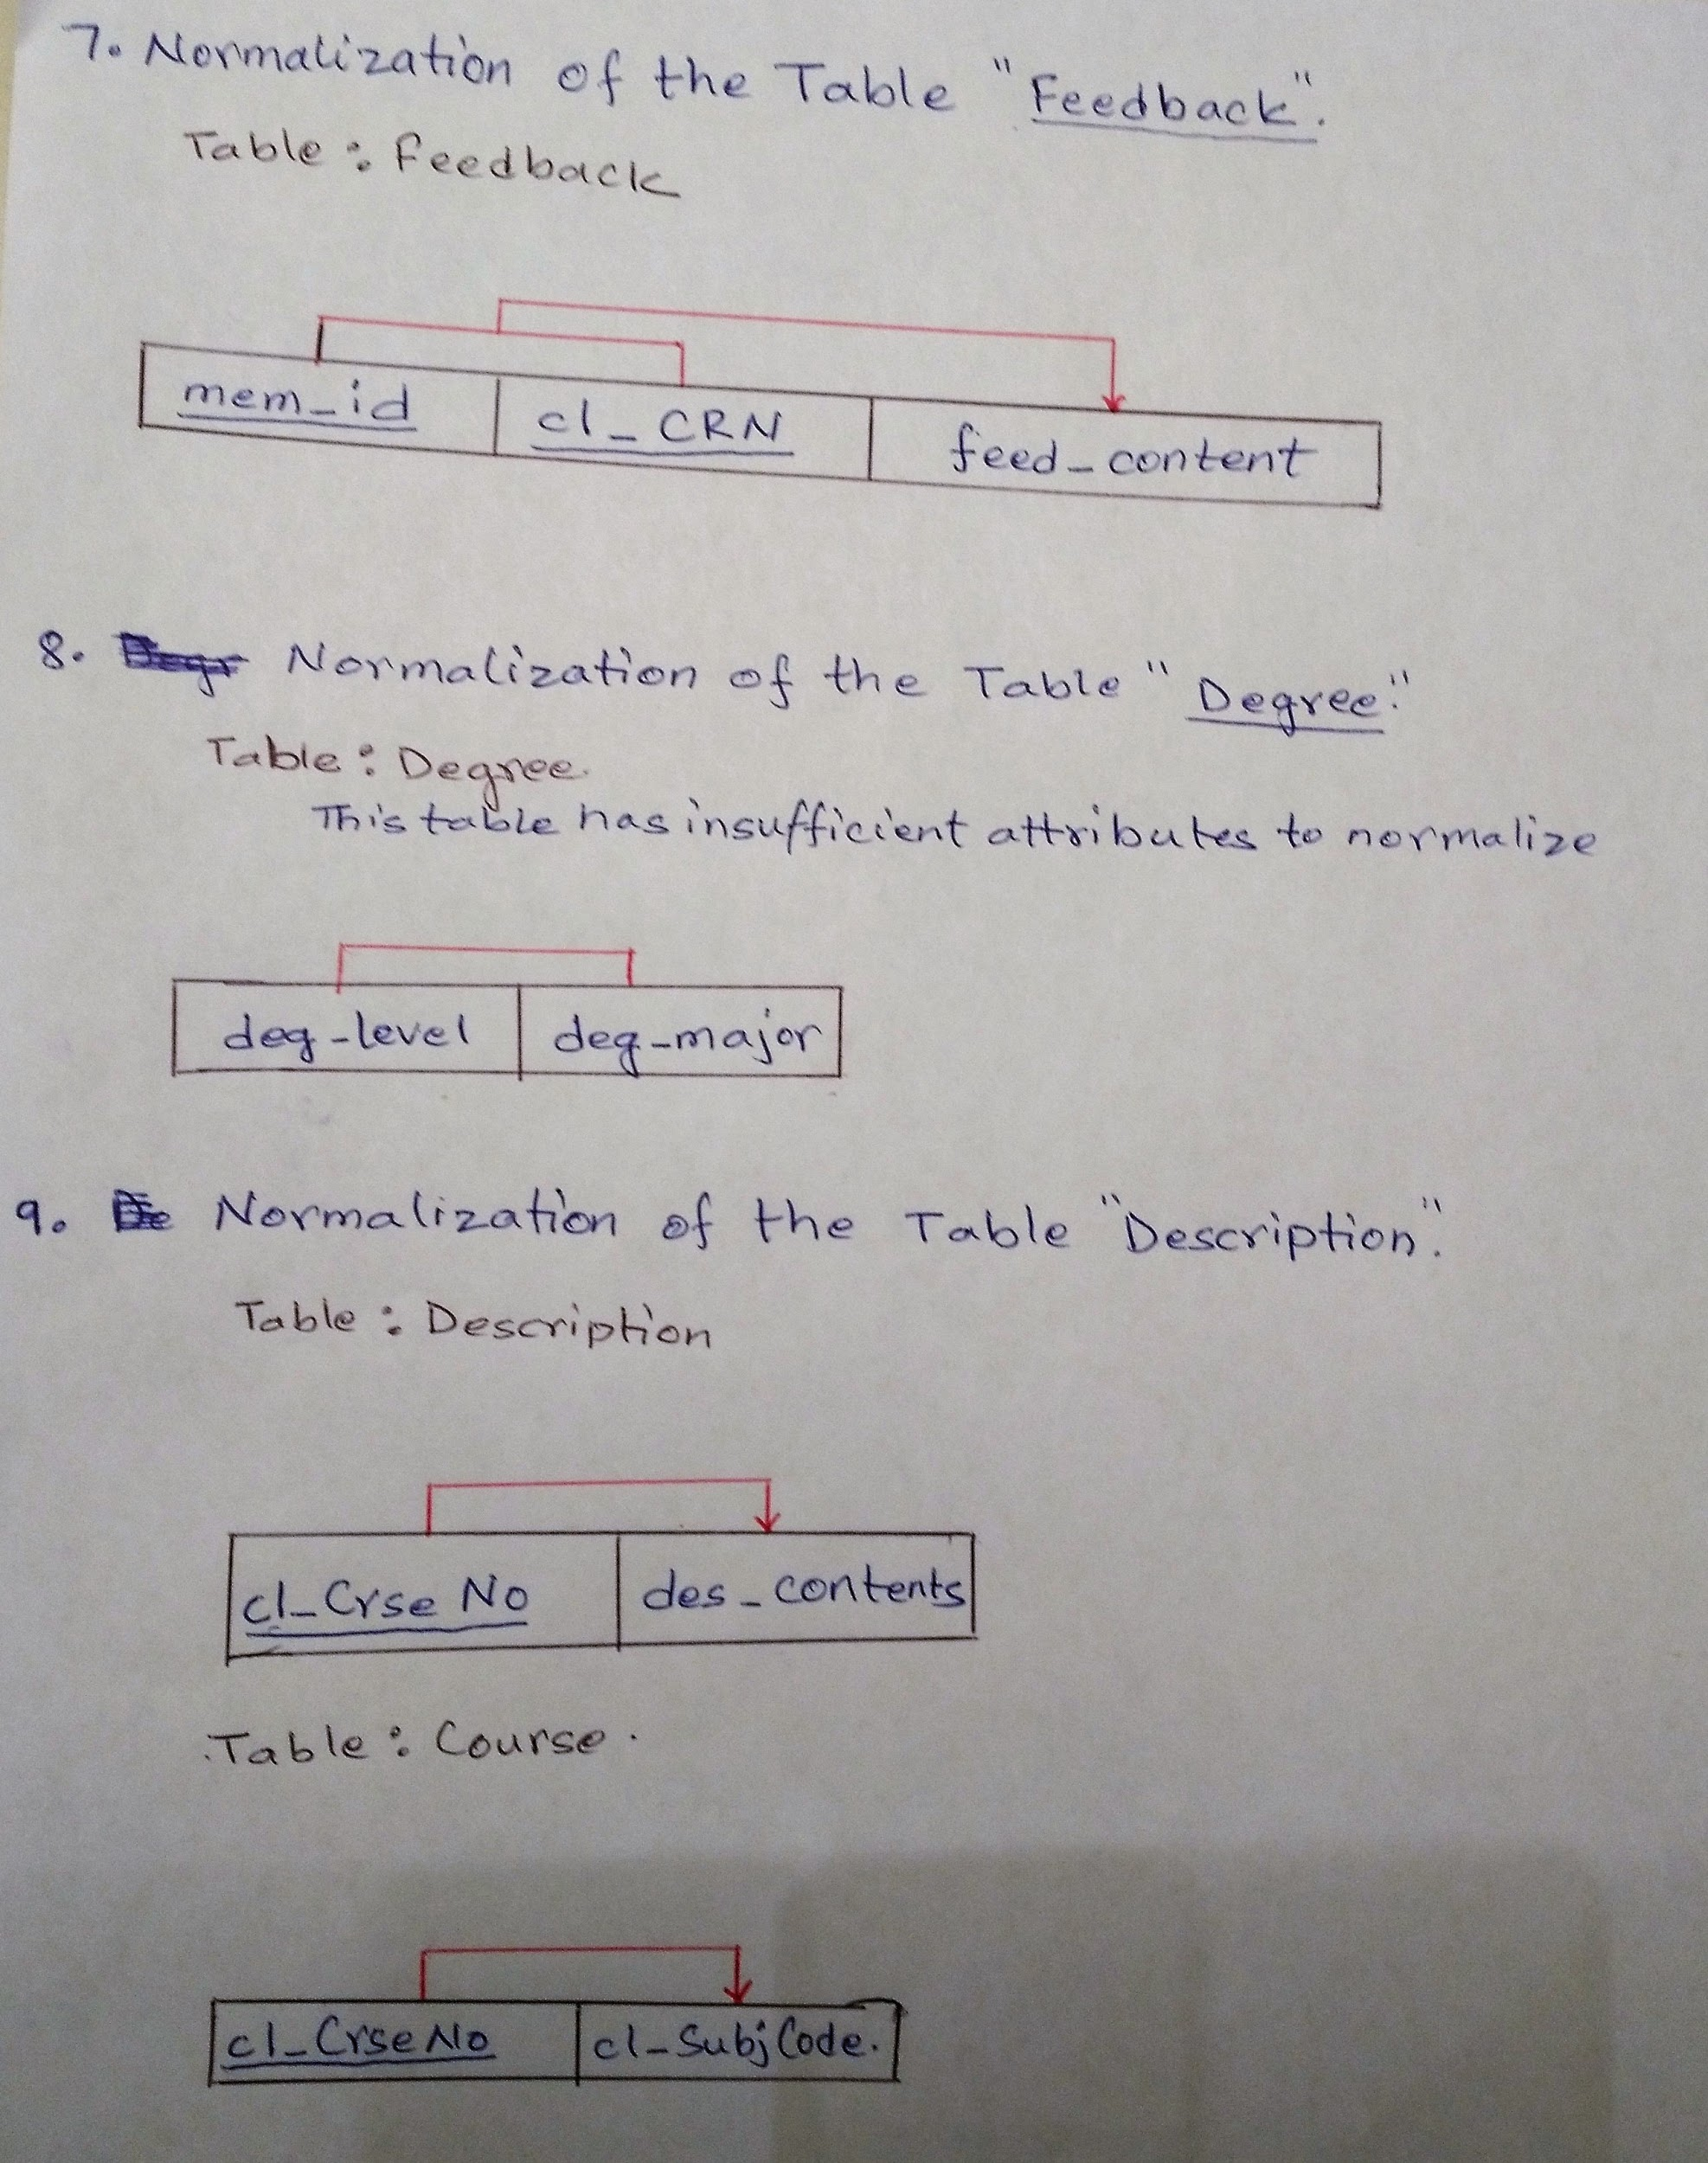 7. Normalization of the Table "Feedback".
Table : Feedback
mem_id cl_CRN feed_content
8. Normalization of the Table "Degree."
Table : Degree.
This table has insufficient attributes to normalize
deg-level deg-major
9. Normalization of the Table "Description".
Table : Description
cl_Crse No des_contents
Table : Course.
cl_CrseNo cl-SubjCode.